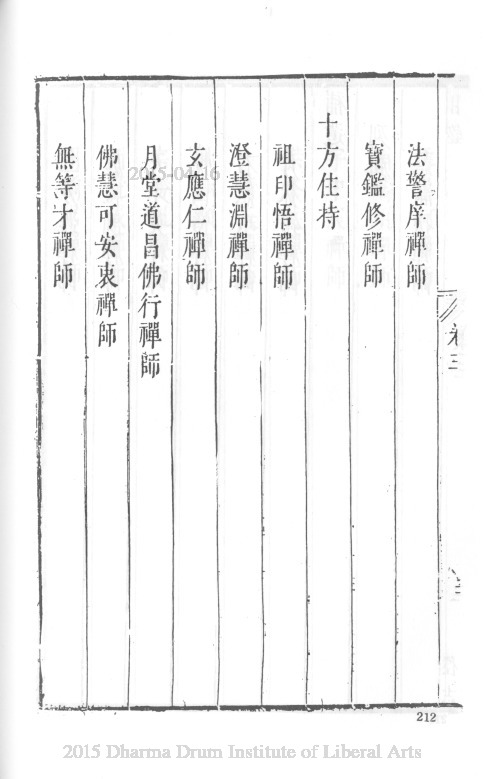 法警庠禪師
寶鑑修禪師
十方住持
祖印悟禪師
澄慧淵禪師
玄應仁禪師
月堂道昌佛行禪師
佛慧可安衷禪師
無等才禪師
卷三
212
2015-04-16
2015 Dharma Drum Institute of Liberal Arts